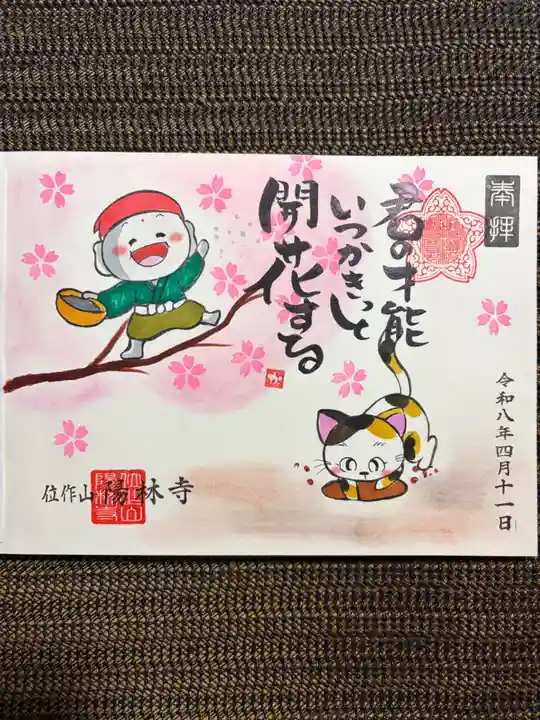 奉拝
君の才能
いつかきっと
開花する
令和八年四月十一日
位作山 陽林寺